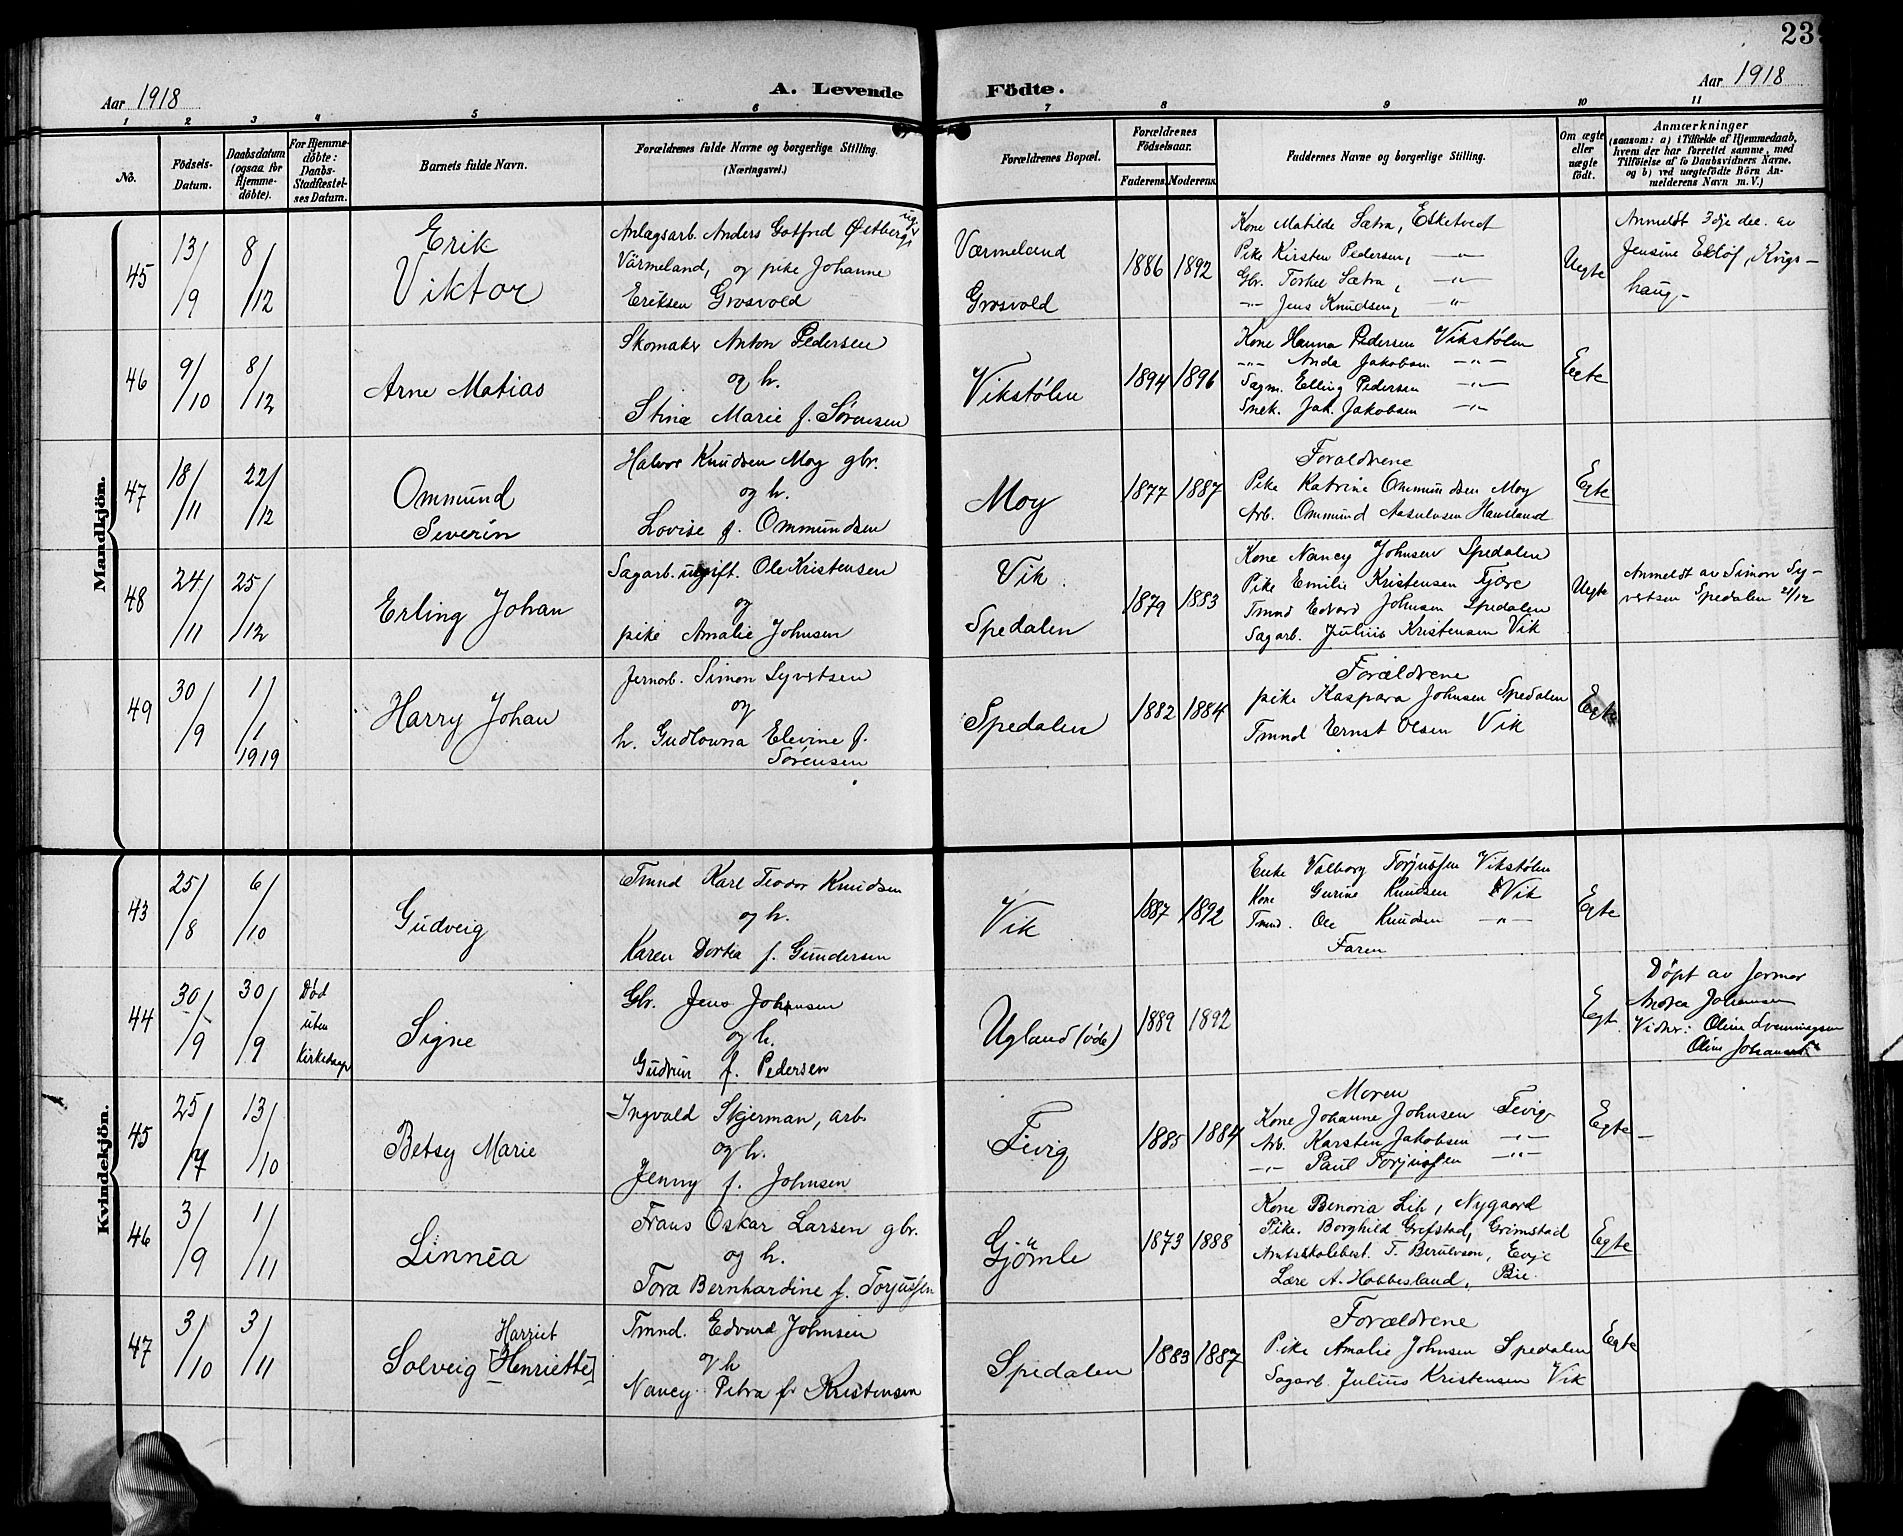 23
Aar 1918
A. Levende Födte.
Aar 1918
1 2 3 4 5 6 7 8 9 10 11
No.
Födsels-
Datum.
Daabsdatum
(ogsaa for
Hjemme-
döbte).
For Hjemme-
döbte:
Daabs-
Stadfæstel-
ses Datum.
Barnets fulde Navn.
Forældrenes fulde Navne og borgerlige Stilling.
(Næringsvei.)
Forældrenes Bopæl.
Forældrenes
Födselsaar.
Faderens. Moderens.
Faddernes Navne og borgerlige Stilling.
Om ægte
eller
uægte
födt.
Anmærkninger
(saasom: a) i Tilfælde af Hjemmedaab,
hvem der har forrettet samme, med
Tilföielse af to Daabsvidners Navne.
og b) ved uægtefödte Börn An-
melderens Navn m. V.)
Mandkjön.
45
13/9
8/12
Erik
Viktor
Anlagsarb. Anders Gotfred Østberg, ug.
Värmeland, og pike Johanne
Eriksen Grosvold
Værmeland
Grosvold
1886 1892
Kone Matilde Sætra, Esketvedt
Pike Kirsten Pedersen, -"-
Gbr. Torkel Sætra, -"-
-"- Jens Knudsen, -"-
Uegte
Anmeldt 3dje dec. av
Jensine Ekløf, Kvigs-
haug.-
46
9/10
8/12
Arne Matias
Skomaker Anton Pedersen
og h.
Stina Marie f. Sørensen
Vikstølen
1894 1896
Kone Hanna Pedersen Vikstølen
-"- Anda Jakobsen -"-
Sagm. Elling Pedersen -"-
Snek. Jak. Jakobsen -"-
Egte
47
18/11
22/12
Ommund
Severin
Halvor Knudsen Moy gbr.
og h.
Lovise f. Ommundsen
Moy
1877 1887
Forældrene
Pike Katrine Ommundsen Moy
Arb. Ommund Aasulvsen Havsland
Egte
48
24/11
25/12
Erling Johan
Sagarb. ugift. Ole Kristensen
og
pike Amalie Johnsen
Vik
Spedalen
1879 1883
Kone Nancy Johnsen Spedalen
Pike Emilie Kristensen Fjære
Tmnd Edvard Johnsen Spedalen
Sagarb. Julius Kristensen Vik
Uegte
Anmeldt av Simon Sy-
vertsen Spedalen 21/12
49
30/9
1/1 1919
Harry Johan
Jernarb. Simon Syvertsen
og
h. Gudlowna Elevine f.
Sørensen
Spedalen
1882 1884
Forældrene
pike Kaspara Johnsen Spedalen
Tmnd Ernst Olsen Vik
Egte
Kvindekjön.
43
25/8
6/10
Gudveig
Tmnd Karl Teodor Knudsen
og h.
Karen Dortea f. Gundersen
Vik
1887 1892
Enke Valborg Torjussen Vikstølen
Kone Gurine Knudsen Vik
Tmnd. Ole Knudsen -"-
Faren
Egte
44
30/9
30/9
Død
uten
Kirkedaap
Signe
Gbr. Jens Johansen
og h.
Gudrun f. Pedersen
Ugland (øde)
1889 1892
Egt.
Døpt av jormor
Andrea Johansen
Vidner: Oline Svenningsen
Oline Johansen
45
25/7
13/10
Betsy Marie
Ingvald Skjerman, arb.
og h.
Jenny f. Johnsen
Fevig
1885 1884
Moren
Kone Johanne Johnsen Fevig
Arb. Karsten Jakobsen -"-
-"- Paul Torjussen -"-
Egte -
46
3/9
1/11
Linnéa
Frans Oskar Larsen gbr.
og h.
Tora Bernhardine f. Torjussen
Gjömle
1873 1888
Kone Benoria Lih, Nygaard
Pike. Borghild Grefstad, Grimstad
Amtsskolebest. T. Berulvson, Evje
Lære A. Hobbesland, Bie.
Egte
47
3/10
3/11
Harriet
Solveig [Henriette]
Tmnd. Edvard Johnsen
og h
Nancy Petra f. Kristensen
Spedalen
1883 1887
Forældrene
Pike Amalie Johnsen Spedalen
Sagarb. Julius Kristensen Vik
Egte